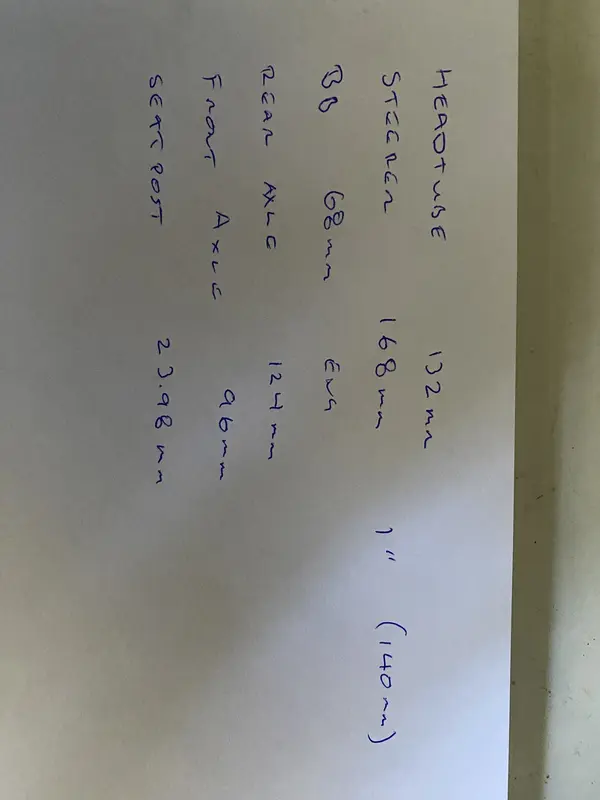 HEADTUBE 132mm
STEERER 168mm 1" (140mm)
BB 68mm ENG
REAR AXLE 124mm
FRONT AXLE 96mm
SEAT POST 23.98mm